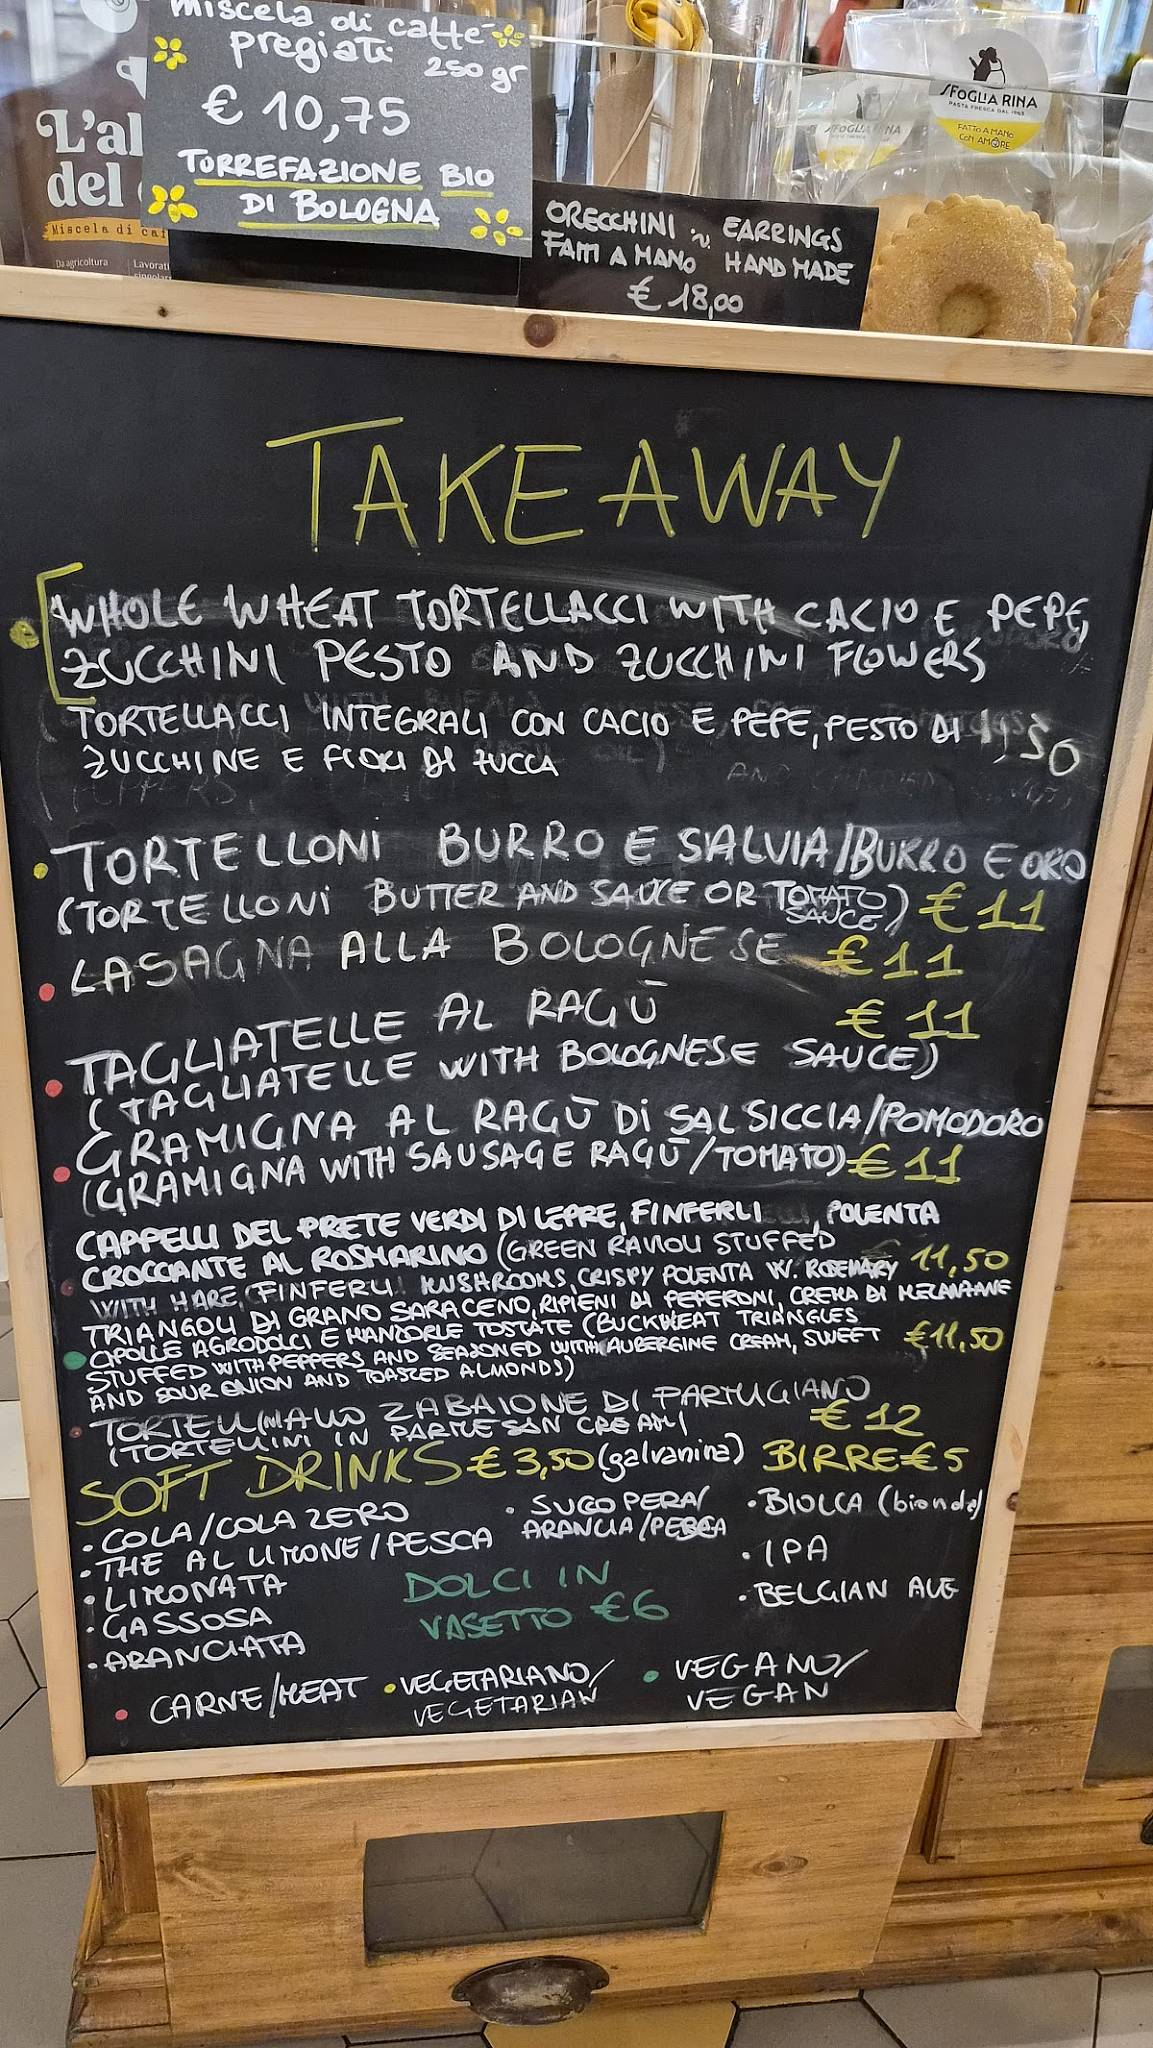 miscela di caffè
pregiati 250 gr
€ 10,75
TORREFAZIONE BIO
DI BOLOGNA
L'al
del
Miscela di caf
Da agricoltura
Lavorati
ORECCHINI ~ EARRINGS
FATTI A MANO HAND MADE
€ 18,00
SFOGLIA RINA
PASTA FRESCA DAL 1963
FATTO A MANO
CON AMORE
SFOGLIA RINA
TAKE AWAY
WHOLE WHEAT TORTELLACCI WITH CACIO E PEPE,
ZUCCHINI PESTO AND ZUCCHINI FLOWERS
TORTELLACCI INTEGRALI CON CACIO E PEPE, PESTO DI 11,50
ZUCCHINE E FIORI DI ZUCCA
TORTELLONI BURRO E SALVIA/BURRO E ORO
(TORTELLONI BUTTER AND SAUCE OR TOMATO SAUCE) € 11
LASAGNA ALLA BOLOGNESE € 11
TAGLIATELLE AL RAGÙ € 11
(TAGLIATELLE WITH BOLOGNESE SAUCE)
GRAMIGNA AL RAGÙ DI SALSICCIA/POMODORO
(GRAMIGNA WITH SAUSAGE RAGÙ/TOMATO) € 11
CAPPELLI DEL PRETE VERDI DI LEPRE, FINFERLI, POLENTA
CROCCANTE AL ROSMARINO (GREEN RAVIOLI STUFFED
WITH HARE, FINFERLI MUSHROOMS, CRISPY POLENTA W. ROSEMARY € 11,50
TRIANGOLI DI GRANO SARACENO, RIPIENI DI PEPERONI, CREMA DI MELANZANE
CIPOLLE AGRODOLCI E MANDORLE TOSTATE (BUCKWHEAT TRIANGLES
STUFFED WITH PEPPERS AND SEASONED WITH AUBERGINE CREAM, SWEET € 11,50
AND SOUR ONION AND TOASTED ALMONDS)
TORTELLINI ALLO ZABAIONE DI PARMIGIANO
(TORTELLINI IN PARMESAN CREAM) € 12
SOFT DRINKS € 3,50 (galvanina) BIRRE € 5
• COLA/COLA ZERO
• THE AL LIMONE/PESCA
• LIMONATA
• GASSOSA
• ARANCIATA
• SUCO PERA/
ARANCIA/PESCA
DOLCI IN
VASETTO € 6
• BIOLCA (bionda)
• IPA
• BELGIAN ALE
• CARNE/MEAT
• VEGETARIANO/
VEGETARIAN
• VEGANO/
VEGAN